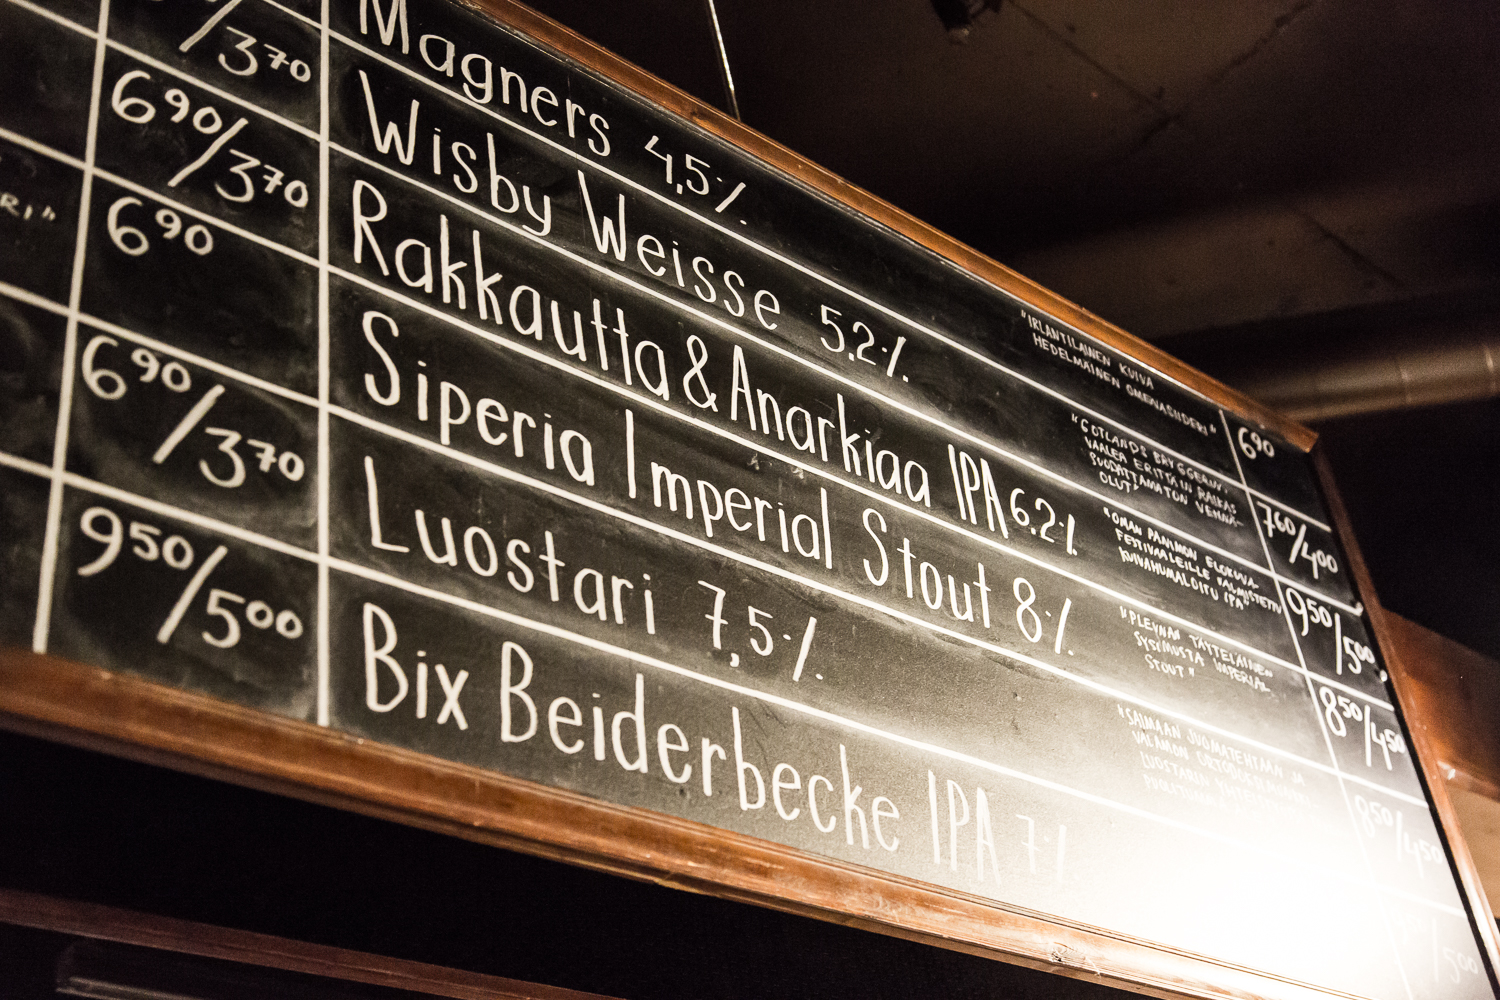 /3⁷⁰
6⁹⁰/3⁷⁰
RI"
6⁹⁰
6⁹⁰/3⁷⁰
9⁵⁰/5⁰⁰
Magners 4,5%
"IRLANTILAINEN KUIVA
HEDELMÄINEN OMENASIIDERI"
6⁹⁰
Wisby Weisse 5.2%
"GOTLANDS BRYGGERIN,
VAALEA ERITTÄIN RAIKAS
SUODATTAMATON VEHNÄ-
OLUT"
7⁶⁰/4⁰⁰
Rakkautta & Anarkiaa IPA 6.2%
"OMAN PANIMON ELOKUVA-
FESTIVAALEILLE VALMISTETTU
KUIVAHUMALOITU IPA"
9⁵⁰/5⁰⁰
Siperia Imperial Stout 8%
"PLEVNAN TÄYTELÄINEN
SYSIMUSTA IMPERIAL
STOUT"
8⁵⁰/4⁵⁰
Luostari 7,5%
"SAIMAAN JUOMATEHTAAN JA
VALAMON ORTODOKSI
LUOSTARIN
8⁵⁰/4⁵⁰
Bix Beiderbecke IPA 7%
/5⁰⁰